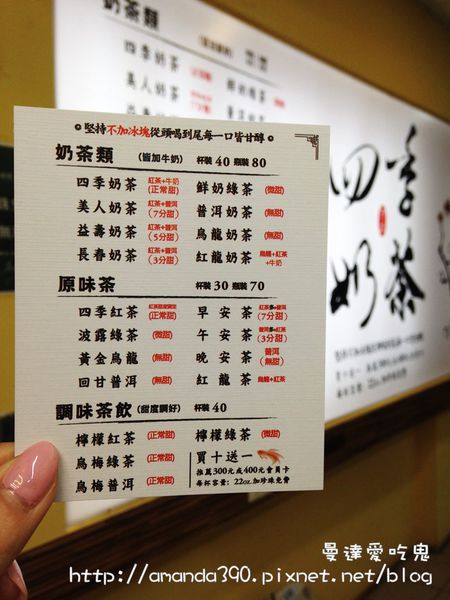 奶茶類
四季奶茶
美人奶茶
⊙堅持不加冰塊從頭喝到尾每一口皆甘醇⊙
奶茶類 (皆加牛奶) 杯裝 40 瓶裝 80
四季奶茶 紅茶+牛奶 (正常甜) 鮮奶綠茶 (微甜)
美人奶茶 紅茶+普洱 (7分甜) 普洱奶茶 (無甜)
益壽奶茶 紅茶+普洱 (5分甜) 烏龍奶茶 (無甜)
長春奶茶 紅茶+普洱 (3分甜) 紅龍奶茶 烏龍+紅茶 +牛奶
原味茶 杯裝 30 瓶裝 70
四季紅茶 (正常甜) 早安茶 紅茶多+普洱 (7分甜)
波露綠茶 (微甜) 午安茶 普洱多+紅茶 (3分甜)
黃金烏龍 (無甜) 晚安茶 普洱 (無甜)
回甘普洱 (無甜) 紅龍茶 烏龍+紅茶
調味茶飲 (甜度調好) 杯裝 40
檸檬紅茶 (正常甜) 檸檬綠茶 (微甜)
烏梅綠茶 (正常甜) 買十送一
烏梅普洱 (正常甜) 推薦300元或400元會員卡
每杯容量: 22oz.加珍珠免費
四季
奶茶
曼達愛吃鬼
http://amanda390.pixnet.net/blog